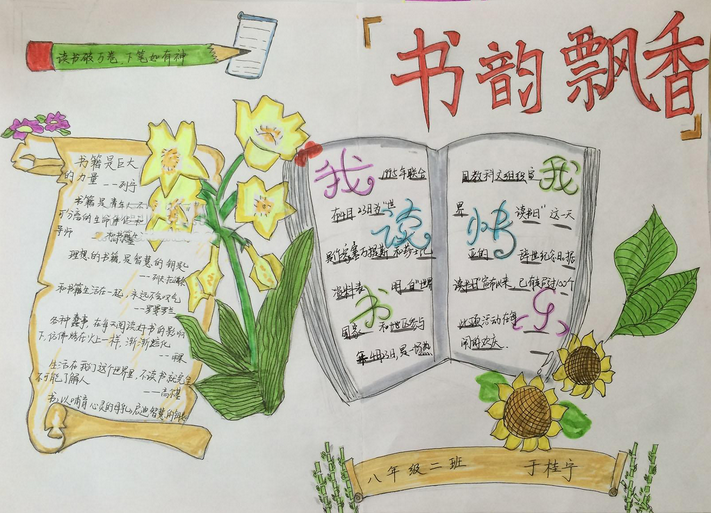 书韵飘香
读书破万卷 下笔如有神
书籍是巨大
的力量 ——列宁
书籍是青年人不
可分离的生命伴侣和
导师
理想的书籍是智慧的钥匙
——列夫·托尔斯泰
和书籍生活在一起，永远不会叹气
——罗曼·罗兰
各种蠢事，在每天阅读好书的影响
下，仿佛烤在火上一样，渐渐熔化
——雨果
生活在我们这个世界里，不读书就完全
不可能了解人
——高尔基
书，以哺育心灵的母乳，启迪智慧的钥匙
我 1995年联合
在4月23日为"世
读
图书
国家 和地区参与
每年的4月23日，是一场热
国教科文组织宣 我
界 快 读书日"这一天
亚的 辞世纪念日，据
读书日"宣布以来，已有超过100个
此项活动在每 乐
闹的欢庆
八年级二班 于桂宁